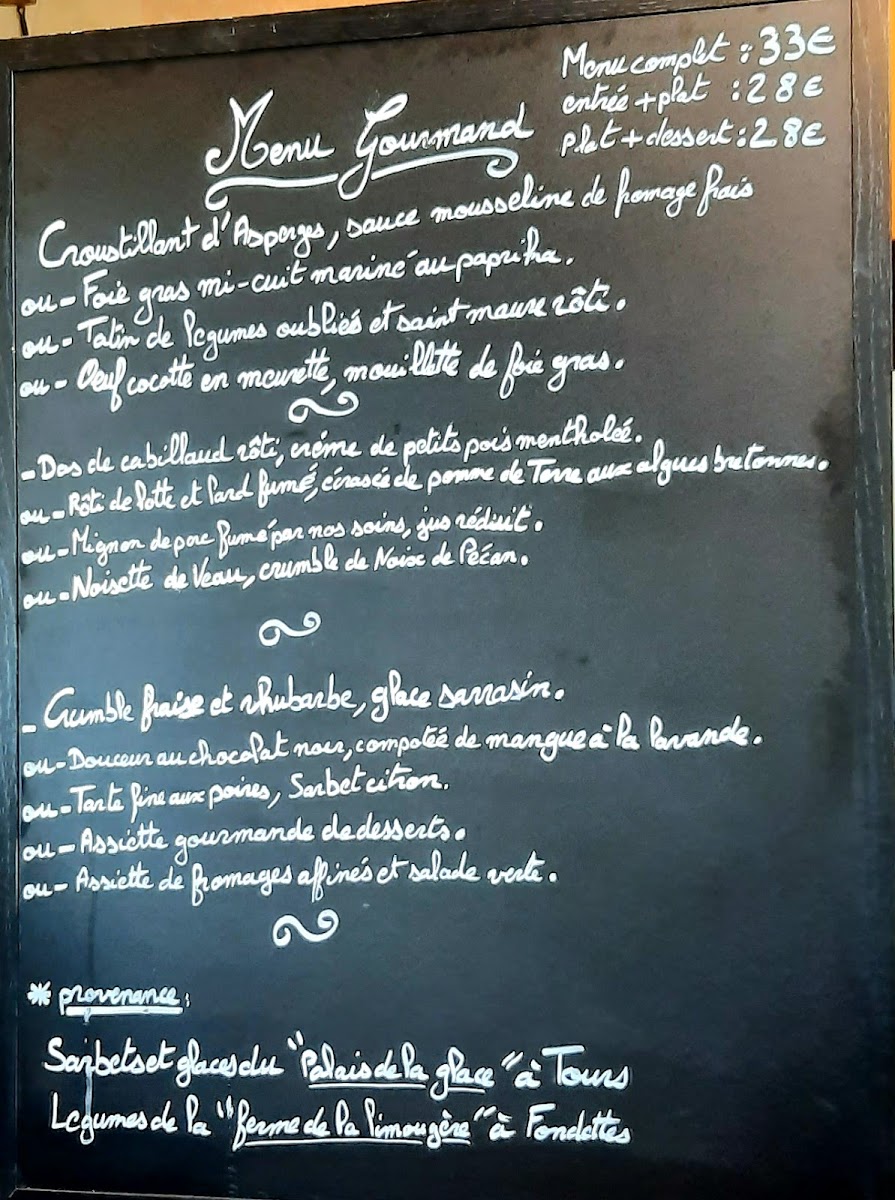 Menu complet : 33€
entrée + plat : 28€
plat + dessert : 28€
Menu Gourmand
Croustillant d'Asperges, sauce mousseline de fromage frais
ou - Foie gras mi-cuit mariné au paprika.
ou - Tatin de légumes oubliés et saint maure rôti.
ou - Oeuf cocotte en meurette, mouillette de foie gras.
- Dos de cabillaud rôti, crème de petits pois mentholée.
ou - Rôti de lotte et lard fumé, écrasée de pomme de Terre aux algues bretonnes.
ou - Mignon de porc fumé par nos soins, jus réduit.
ou - Noisette de Veau, crumble de Noix de Pécan.
- Crumble fraise et rhubarbe, glace sarrasin.
ou - Douceur au chocolat noir, compotée de mangue à la lavande.
ou - Tarte fine aux poires, Sorbet citron.
ou - Assiette gourmande de desserts.
ou - Assiette de fromages affinés et salade verte.
* provenance :
Sorbets et glaces du "Palais de la glace" à Tours
Légumes de la "ferme de la limougère" à Fondettes